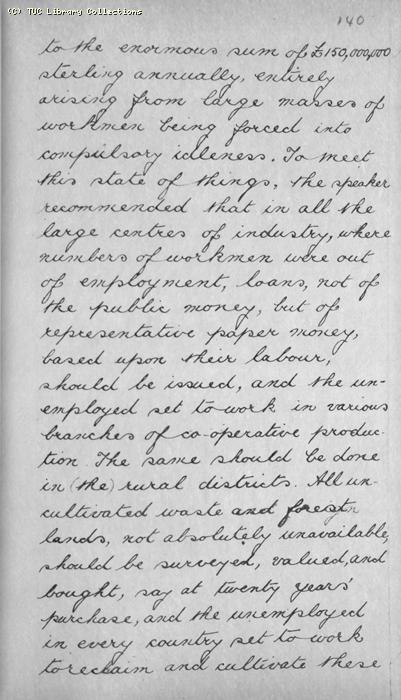 (C) TUC Library Collections
140
to the enormous sum of £150,000,000
sterling annually, entirely
arising from large masses of
workmen being forced into
compulsory idleness. To meet
this state of things, the speaker
recommended that in all the
large centres of industry, where
numbers of workmen were out
of employment, loans, not of
the public money, but of
representative paper money,
based upon their labour,
should be issued, and the un-
employed set to work in various
branches of co-operative produc-
tion. The same should be done
in (the) rural districts. All un-
cultivated waste and
lands, not absolutely unavailable,
should be surveyed, valued, and
bought, say at twenty years'
purchase, and the unemployed
in every country set to work
to reclaim and cultivate these